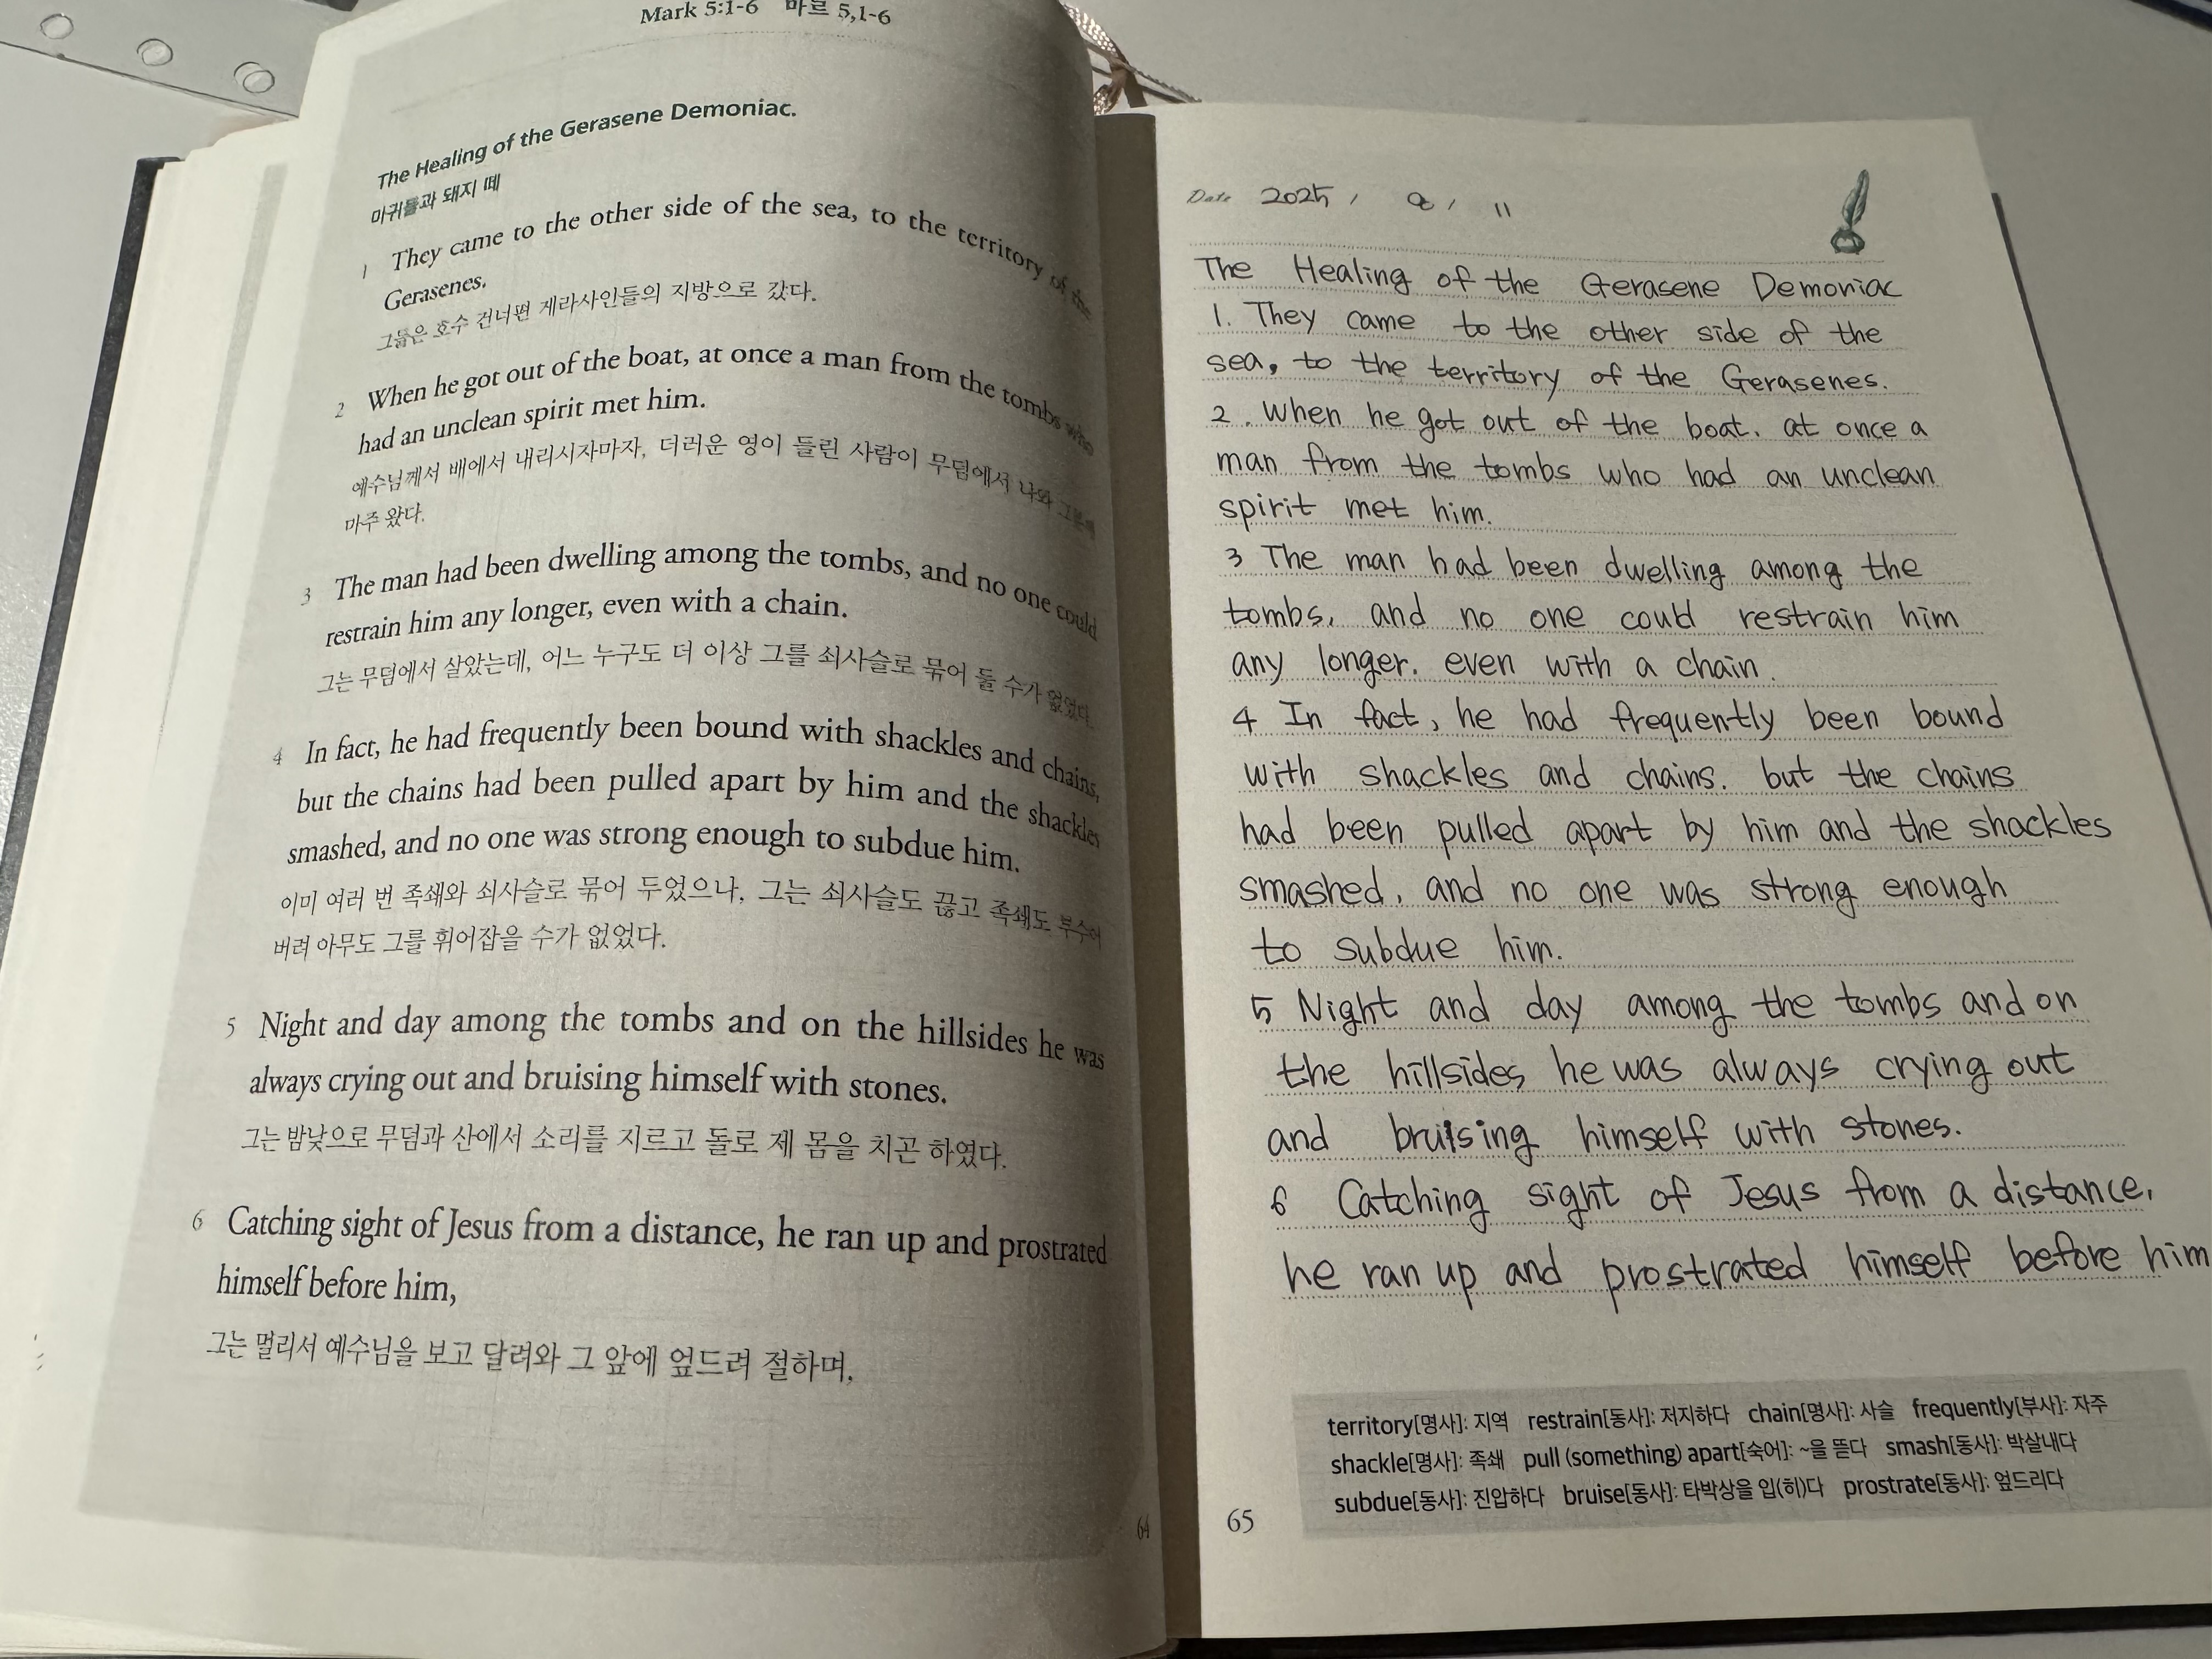 Mark 5:1-6 마르 5,1-6
The Healing of the Gerasene Demoniac.
마귀들과 돼지 떼
1 They came to the other side of the sea, to the territory of the
Gerasenes.
그들은 호수 건너편 게라사인들의 지방으로 갔다.
2 When he got out of the boat, at once a man from the tombs who
had an unclean spirit met him.
예수님께서 배에서 내리시자마자, 더러운 영이 들린 사람이 무덤에서 나와
마주 왔다.
3 The man had been dwelling among the tombs, and no one could
restrain him any longer, even with a chain.
그는 무덤에서 살았는데, 어느 누구도 더 이상 그를 쇠사슬로 묶어 둘 수가 없었다.
4 In fact, he had frequently been bound with shackles and chains,
but the chains had been pulled apart by him and the shackles
smashed, and no one was strong enough to subdue him.
이미 여러 번 족쇄와 쇠사슬로 묶어 두었으나, 그는 쇠사슬도 끊고 족쇄도 부수어
버려 아무도 그를 휘어잡을 수가 없었다.
5 Night and day among the tombs and on the hillsides he was
always crying out and bruising himself with stones.
그는 밤낮으로 무덤과 산에서 소리를 지르고 돌로 제 몸을 치곤 하였다.
6 Catching sight of Jesus from a distance, he ran up and prostrated
himself before him,
그는 멀리서 예수님을 보고 달려와 그 앞에 엎드려 절하며,
64
Date 2025 / 8 / 11
The Healing of the Gerasene Demoniac
1. They came to the other side of the
sea, to the territory of the Gerasenes.
2. When he got out of the boat. at once a
man from the tombs who had an unclean
spirit met him.
3 The man had been dwelling among the
tombs, and no one could restrain him
any longer. even with a chain.
4 In fact, he had frequently been bound
with shackles and chains. but the chains
had been pulled apart by him and the shackles
smashed, and no one was strong enough
to subdue him.
5 Night and day among the tombs and on
the hillsides he was always crying out
and bruising himself with stones.
6 Catching sight of Jesus from a distance,
he ran up and prostrated himself before him
territory[명사]: 지역 restrain[동사]: 저지하다 chain[명사]: 사슬 frequently[부사]: 자주
shackle[명사]: 족쇄 pull (something) apart[숙어]: ~을 뜯다 smash[동사]: 박살내다
subdue[동사]: 진압하다 bruise[동사]: 타박상을 입(히)다 prostrate[동사]: 엎드리다
65